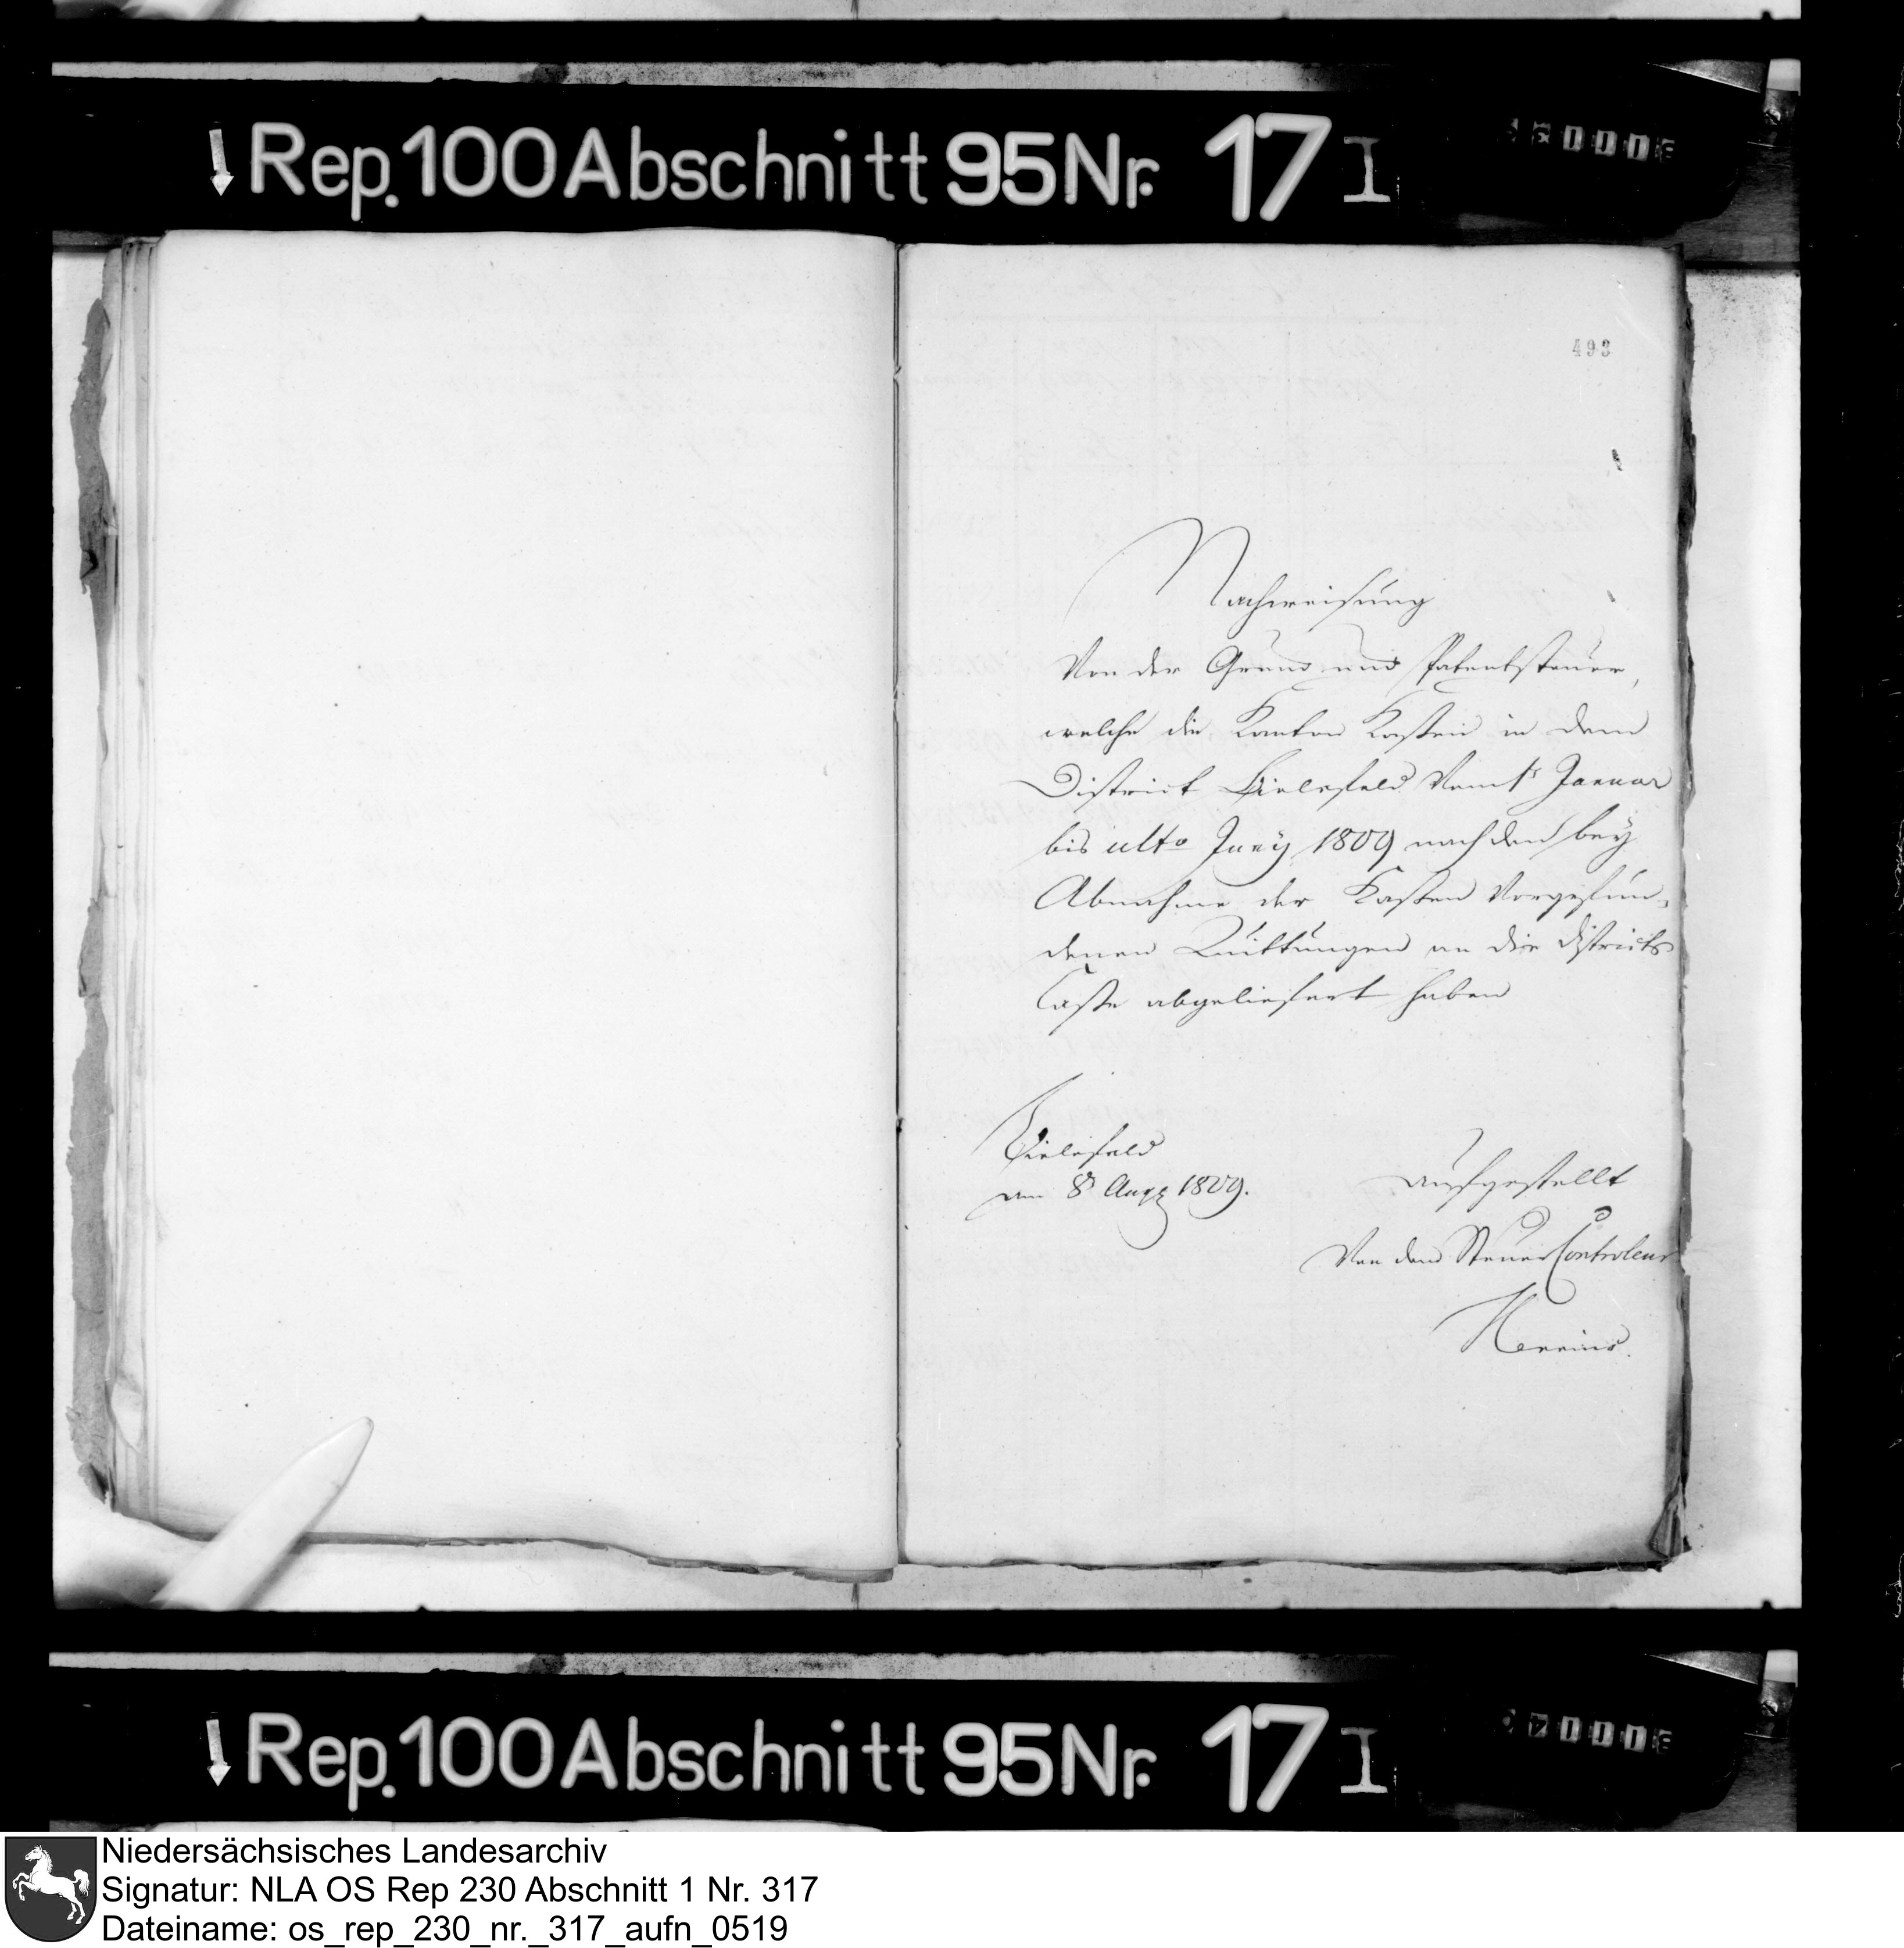 Rep. 100 Abschnitt 95 Nr. 17 I
493
Nachweisung
Von der Grund und Patentsteuer,
welche die Kanton Kassen in dem
District Bielefeld Vom 1t Januar
bis ulto Juny 1809 nach den bey
Abnahme der Kassen Vorgefun-
denen Quittungen an die Districts
Casse abgeliefert haben
Bielefeld
am 8t Aug 1809.
aufgestellt
Von dem Steuer Controleur
Rep. 100 Abschnitt 95 Nr. 17 I
Niedersächsisches Landesarchiv
Signatur: NLA OS Rep 230 Abschnitt 1 Nr. 317
Dateiname: os_rep_230_nr._317_aufn_0519